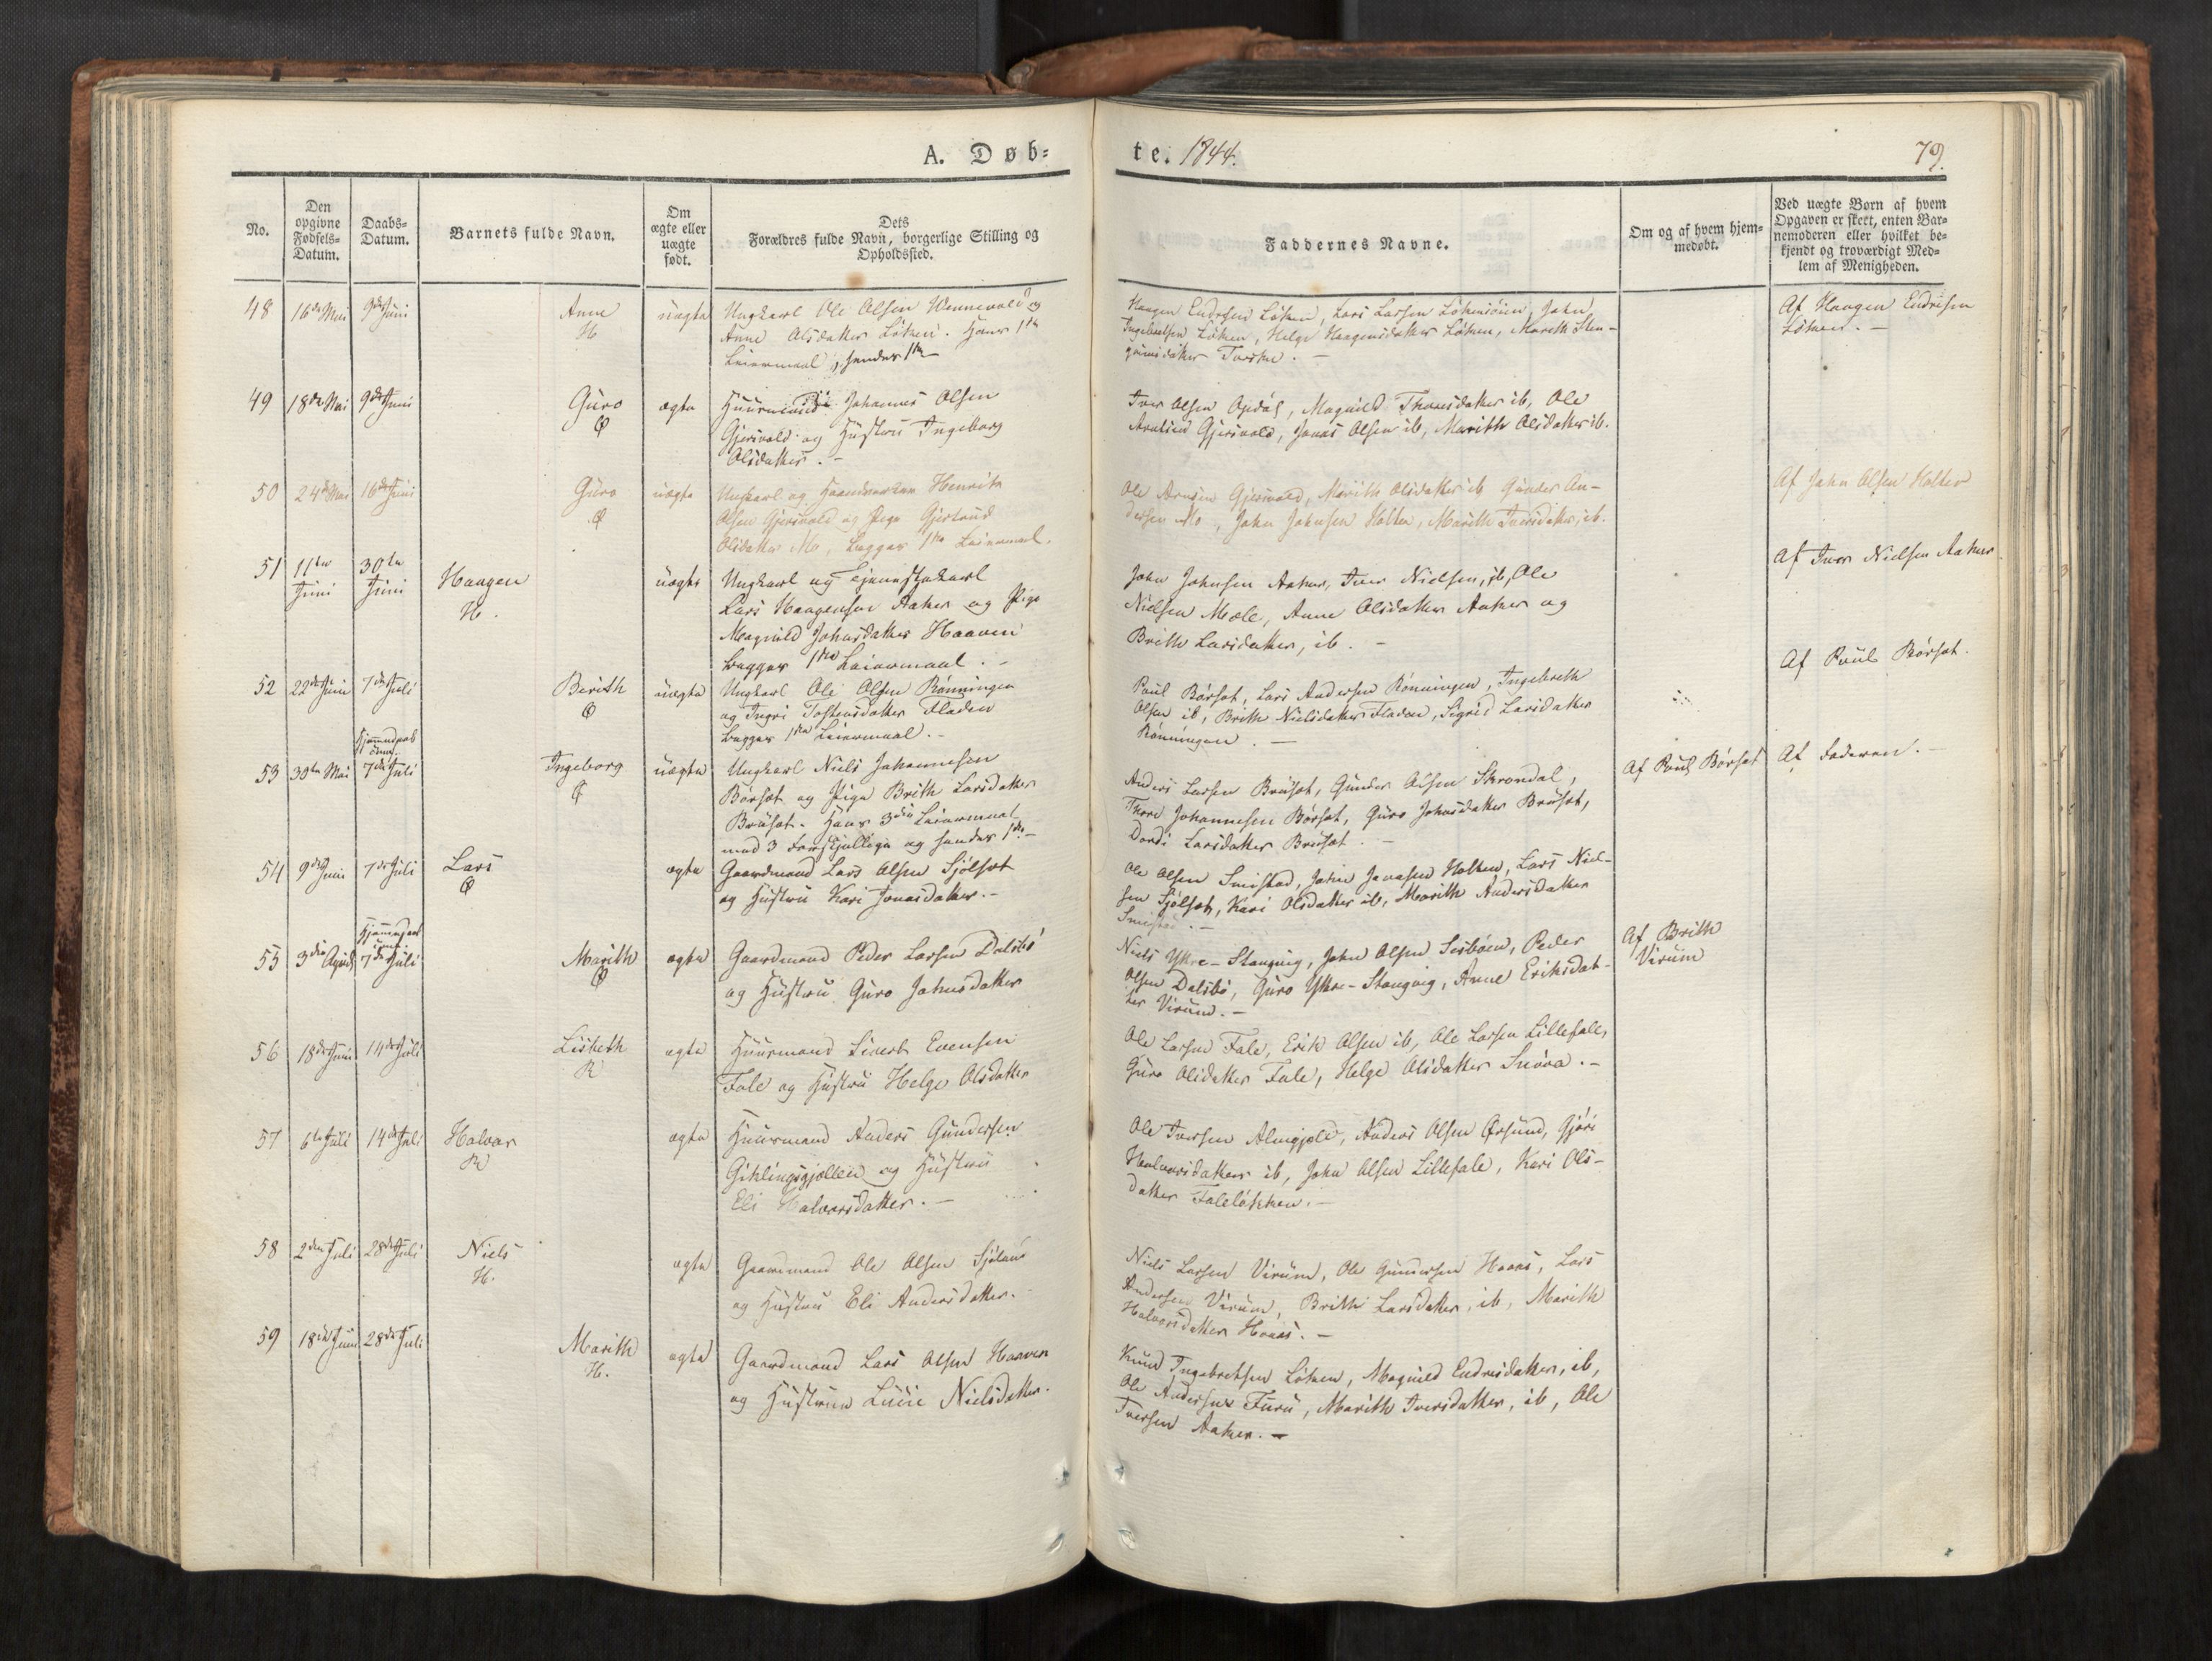 A. Døb-
te. 1844.
79.
No.
Den opgivne Fødsels-Datum.
Daabs-Datum.
Barnets fulde Navn.
Om ægte eller uægte født.
Dets Forældres fulde Navn, borgerlige Stilling og Opholdssted.
Faddernes Navne.
Om og af hvem hjem-medøbt.
Ved uægte Børn af hvem Opgaven er skeet, enten Bar-nemoderen eller hvilket be-kjendt og troværdigt Med-lem af Menigheden.
48 16de Mai 9de Juni Anne H uægte
Ungkarl Ole Olsen Wennevold og
Anne Olsdatter Løken. Hans 1ste
Leiermaal, hendes 1ste
Haagen Endresen Løken, Lars Larsen, John
Ingebretsen Løken, Helge Haagensdatter Løken, Marith Sten-
Torske. -
Af Haagen Endresen
Løken. -
49 18de Mai 9de Juni Guro Ø ægte
Huusmand Johannes Olsen
Gjersvold og Hustru Ingeborg
Olsdatter. -
Iver Olsen Opdøl, Magnild ib, Ole
Arntsen Gjersvold, Jonas Olsen ib, Marith Olsdatter ib.
50 24de Mai 16de Juni Guro Ø uægte
Ungkarl og Haandverker Henrik
Olsen Gjersvold og Pige Gjertrud
Olsdatter Mo, begges 1ste Leiermaal.
Ole Arntsen Gjersvold, Marith Olsdatter ib, Gunder An-
dersen Mo, John Johnsen Holten, Marith Iversdatter, ib.
Af John Olsen Holten
51 11te Juni 30te Juni Haagen H. uægte
Ungkarl og Tjenestekarl
Lars Haagensen Aaker og Pige
Magnild Johnsdatter Haaven
begges 1ste Leiermaal. -
John Johnsen Aaker, Iver Nielsen, ib, Ole
Nielsen Mæle, Anne Olsdatter Aaker og
Brith Larsdatter, ib. -
Af Iver Nielsen Aaker.
52 22de Juni 7de Juli Berith Ø uægte
Ungkarl Ole Olsen Rønningen
og Ingri Tostensdatter Fladen
begges 1ste Leiermaal. -
Poul Børset, Lars Andersen Rønningen, Ingebreth
Olsen ib, Brith Nielsdatter Fladen, Sigrid Larsdatter
Rønningen. -
Af Poul Børset.
53 30te Mai 7de Juli Ingeborg Ø uægte
Ungkarl Niels Johannesen
Børset og Pige Brith Larsdatter
Bruset. Hans 3die Leiermaal
med 3 forskjellige og hendes 1ste. -
Anders Larsen Bruset, Gunder Olsen Skrondal,
Thore Johannesen Børset, Guro Johnsdatter Bruset,
Dordi Larsdatter Bruset. -
Af Poul Børset
Af Faderen. -
54 9de Juni 7de Juli Lars Ø ægte
Gaardmand Lars Olsen Sjølset
og Hustru Kari Jonasdatter. -
Ole Olsen Smistad, John Jonasen Holten, Lars Niel-
sen Sjølset, Kari Olsdatter ib, Marith Andersdatter
Smistad. -
55 3die April 7de Juli Marith Ø ægte
Gaardmand Peder Larsen Dalsbø
og Hustru Guro Johnsdatter
Niels Ytre-Stangvig, John Olsen, Peder
Olsen Dalsbø, Guro Ytre-Stangvig, Anne Eriksdat-
ter Virum. -
Af Brith
Virum
56 18de Juni 14de Juli Lisbeth R ægte
Huusmand Sivert Evensen
Fale og Hustru Helge Olsdatter
Ole Larsen Fale, Erik Olsen ib, Ole Larsen Lillefale,
Guro Olsdatter Fale, Helge Olsdatter Snøva. -
57 6te Juli 14de Juli Halvor R ægte
Huusmand Anders Gundersen
Giklingsgjellen og Hustru
Eli Halvorsdatter. -
Ole Iversen Almgjeld, Anders Olsen Ørsund, Gjøri
Halvorsdatter ib, John Olsen Lillefale, Kari Ols-
datter Faleløkken. -
58 2den Juli 28de Juli Niels H. ægte
Gaardmand Ole Olsen
og Hustru Eli Andersdatter.
Niels Larsen Virum, Ole Gundersen Haaes, Lars
Andersen Virum, Brith Larsdatter, ib, Marith
Halvorsdatter Haaes. -
59 18de Juni 28de Juli Marith H. ægte
Gaardmand Lars Olsen Haaven
og Hustrue Nielsdatter.
Knud Ingebretsen Løken, Magnild Endresdatter, ib,
Ole Andersen Furu, Marith Iversdatter, ib, Ole
Iversen Aaker. -